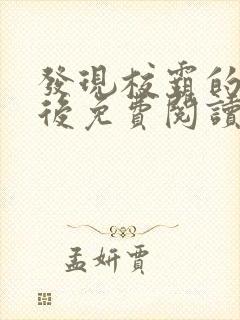 發現校霸的
後免費閱讀
孟妍賈